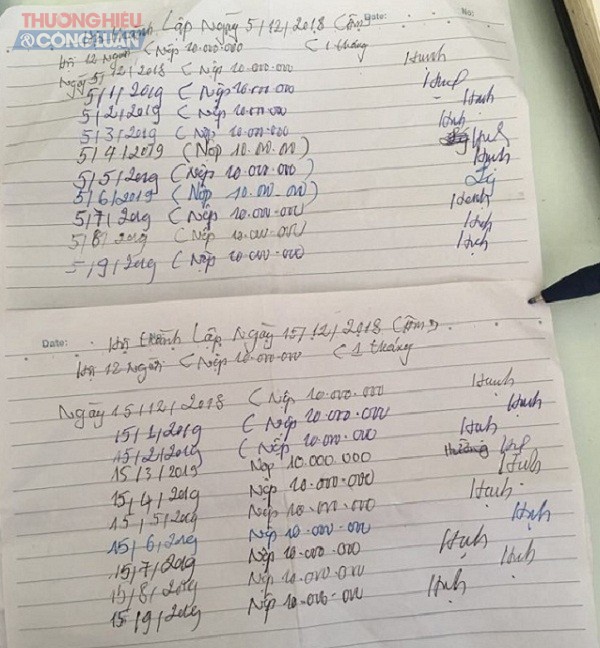 THƯƠNG HIỆU
& CÔNG LUẬN
Date: No:
Lập Ngày 5/12/2018
Hội 12 Người (Nộp 10.000.000 (1 tháng
Ngày 5/12/2018 (Nộp 10.000.000 Hạnh
5/1/2019 (Nộp 10.000.000
5/2/2019 (Nộp 10.000.000 Hạnh
5/3/2019 (Nộp 10.000.000 Hạnh
5/4/2019 (Nộp 10.000.000)
5/5/2019 (Nộp 10.000.000) Hạnh
5/6/2019 (Nộp 10.000.000)
5/7/2019 (Nộp 10.000.000 Hạnh
5/8/2019 (Nộp 10.000.000 Hạnh
5/9/2019 (Nộp 10.000.000 Hạnh
Date: Hội thành Lập Ngày 15/12/2018
Hội 12 Người (Nộp 10.000.000 (1 tháng
Ngày 15/12/2018 (Nộp 10.000.000 Hạnh
15/1/2019 (Nộp 10.000.000 Hạnh
15/2/2019 (Nộp 10.000.000 Hạnh
15/3/2019 Nộp 10.000.000
15/4/2019 Nộp 10.000.000 Hạnh
15/5/2019 Nộp 10.000.000 Hạnh
15/6/2019 Nộp 10.000.000 Hạnh
15/7/2019 Nộp 10.000.000 Hạnh
15/8/2019 Nộp 10.000.000 Hạnh
15/9/2019 Nộp 10.000.000 Hạnh